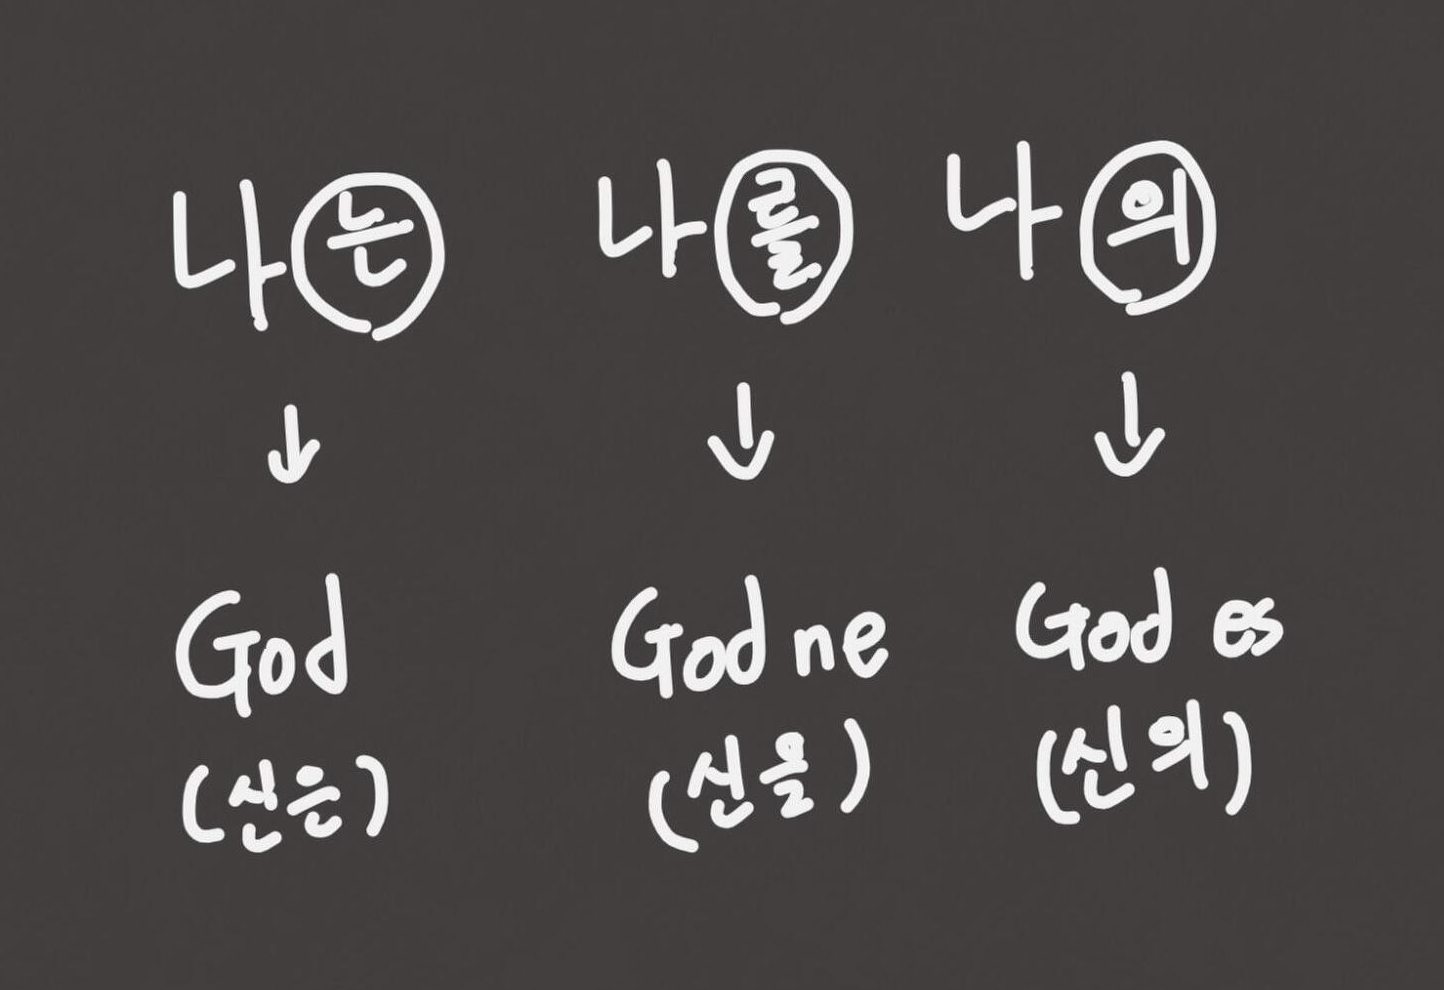 나는 나를 나의
↓ ↓ ↓
God God ne God es
(신은) (신을) (신의)